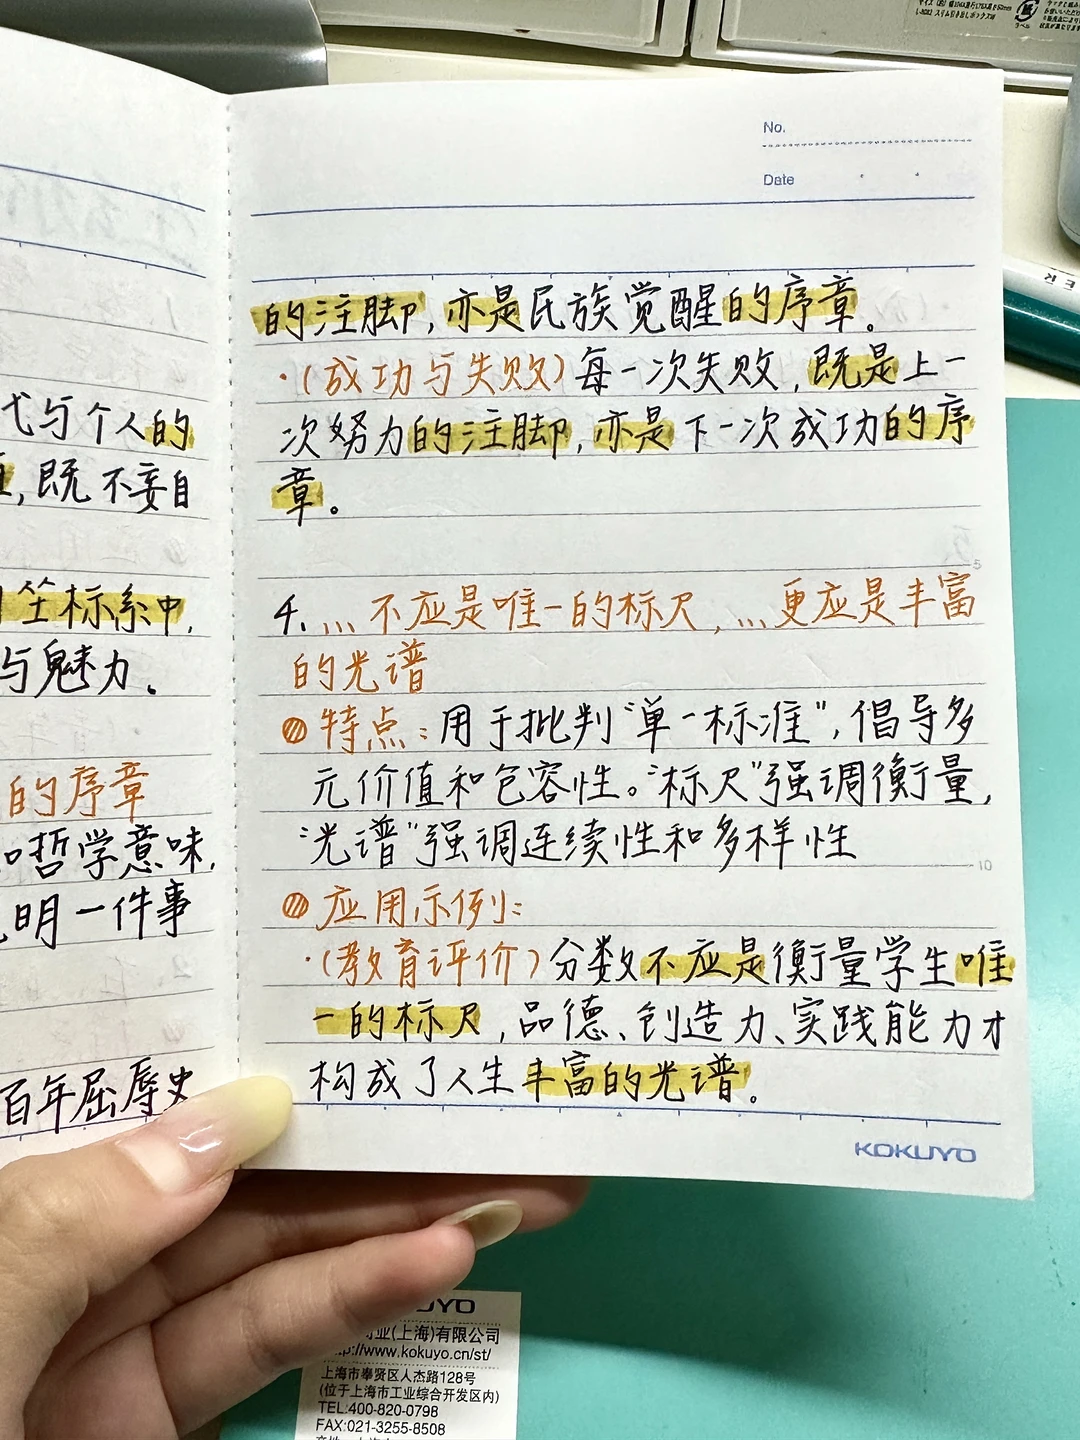 No.
Date
的注脚,亦是民族觉醒的序章。
·(成功与失败)每一次失败,既是上一
次努力的注脚,亦是下一次成功的序
章。
5
4. ... 不应是唯一的标尺, ... 更应是丰富
的光谱
特点:用于批判“单一标准”,倡导多
元价值和包容性。“标尺”强调衡量,
“光谱”强调连续性和多样性
10
应用示例:
·(教育评价)分数不应是衡量学生唯
一的标尺,品德、创造力、实践能力才
构成了人生丰富的光谱。
KOKUYO
与个人的
,既不妄自
坐标系中,
与魅力.
的序章
哲学意味,
明一件事
百年屈辱史
业(上海)有限公司
//www.kokuyo.cn/st/
上海市奉贤区人杰路128号
(位于上海市工业综合开发区内)
TEL:400-820-0798
FAX:021-3255-8508